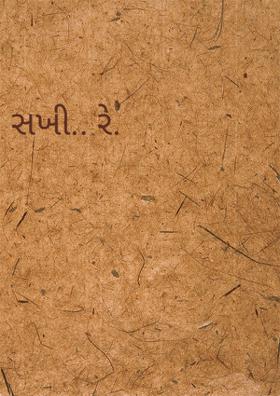 સખી.. રે.